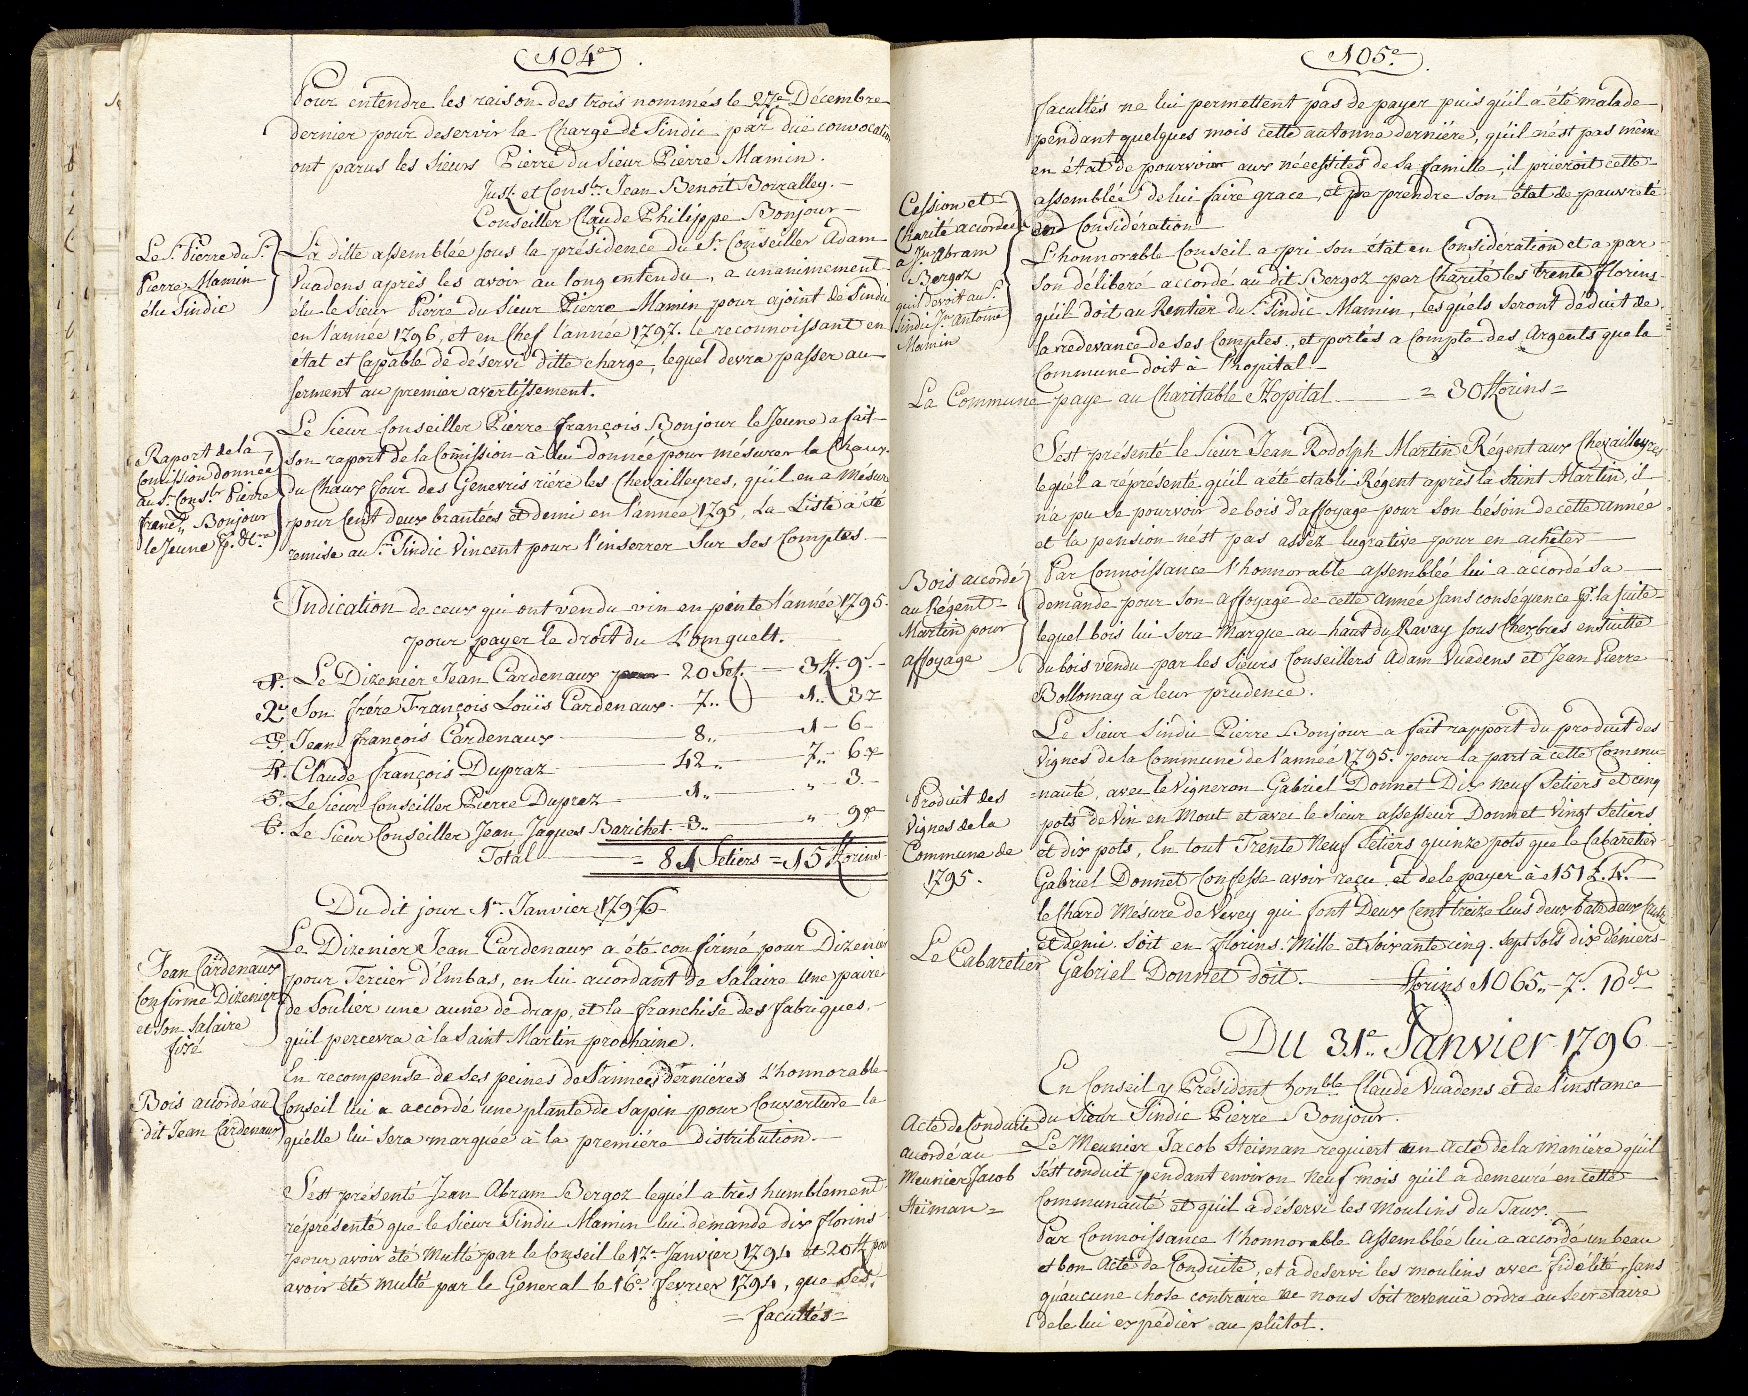 104e.
Pour entendre les raison des trois nommés le 27e Décembre
dernier pour deservir la Charge de Sindic par düe convocation
ont parus les Sieurs Pierre du Sieur Pierre Mamin.
Just: et Conser. Jean Benoit Borralley.
Conseiller Claude Philippe Bonjour
Le Sr. Pierre du Sr.
Pierre Mamin
élu Sindic
La ditte assemblée sous la présidence du Sr. Conseiller Adam
Vuadens après les avoir au long entendu, a unanimement
élu le Sieur Pierre du Sieur Pierre Mamin pour ajoint de Sindic
en l'année 1796, et en Chef l'année 1797. le reconnoissant en
état et Capable de déservi ditte charge, lequel devra passer au
serment au premier avertissement.
Raport de la
Comission donnée
au Sr. Consr. Pierre
franc.s Bonjour
le Jeune P. &ce
Le Sieur Conseiller Pierre françois Bonjour le Jeune a fait
son raport de la Comission à lui donnée pour mésurer la Chaux
du Chaux four des Genevris riére les Chevailleyres, qu'il en a Mésuré
pour Cent deux brantées et demi en l'année 1795, La Liste a été
remise au Sr. Sindic Vincent pour l'inserrer Sur Ses Comptes.
Indication de ceux qui ont vendu vin en pinte l'année 1795.
pour payer le droit du Longuelt.
1. Le Dizenier Jean Cardenaux 20 Set. 3 ff. 9.
2. Son frére François Loüis Cardenaux 7.. 1.. 3
3. Jean françois Cardenaux 8.. 1 - 6
4. Claude françois Dupraz 42.. 7.. 6
5. Le Sieur Conseiller Pierre Duprez 1.. " - 3.
6. Le Sieur Conseiller Jean Jaques Barichet 3.. " 9
Total = 81 Setiers = 15 florins
Du dit jour 1er. Janvier 1796
Jean Cardenaux
Confirmé Dizenier
et Son Salaire
fixé
Le Dizenier Jean Cardenaux a été confirmé pour Dizenier
pour Tercier d'Embas, en lui accordant de Salaire Une paire
de Soulier une aune de drap, et la franchise des fabriques.
qu'il percevra à la Saint Martin prochaine.
Bois acordé au
dit Jean Cardenaux
En recompense de Ses peines de l'année derniéres L'honnorable
Conseil lui a accordé une plante de Sapin pour Couverture la
quélle lui Sera marquée à la premiére distribution.
S'est présenté Jean Abram Bergoz lequél a trés humblement
réprésenté que le Sieur Sindic Mamin lui demande dix florins
pour avoir été Multé par le Conseil le 12e Janvier 1794 et 20 ff pour
avoir été multé par le General le 16e. fevrier 1794, que Ses
= facultés =
105e.
facultés ne lui permettent pas de payer puis qu'il a été malade
pendant quelques mois cette automne derniére, qu'il n'ést pas même
en état de pourvoir aux nécessites de Sa famille, il prieroit cette
assemblée de lui faire grace, et de prendre Son état de pauvreté
en Considération
Cession et
Charité accordée
a Jn. Abram
Bergoz
qu'il devoit au Sr.
Sindic Jn. Antoine
Mamin
L'honnorable Conseil a pri Son état en Considération et a par
Son déliberé accordé au dit Bergoz par Charité les trente florins
qu'il doit au Rentier du Sr. Sindic Mamin, les quels Seront déduit de
la redevance de Ses Comptes, et portés a Compte des Argents que la
Commune doit à l'hopital
La Commune paye au Charitable Hopital = 30 florins =
S'est présenté le Sieur Jean Rodolph Martin Régent aux Chevailleyres
lequél a réprésenté qu'il a été etabli Régent après la Saint Martin, il
n'a pu Se pourvoir de bois d'affoyage pour Son bésoin de cette année
et la pension n'ést pas assez lugrative pour en achéter
Bois accordé
au Régent
Martin pour
affoyage
Par Connoissance l'honnorable assemblée lui a accordé Sa
demande pour Son affoyage de cette année Sans conséquence pr. la Suite
lequel bois lui Sera Marque au haut du Ravay Sous Cherbres ensuitte
du bois vendu par les Sieurs Conseillers Adam Vuadens et Jean Pierre
Bollomay à leur prudence.
Produit des
Vignes de la
Commune de
1795.
Le Sieur Sindic Pierre Bonjour a fait rapport du produit des
Vignes de la Commune de l'année 1795. pour la part à cette Commu
=nauté, avec le Vigneron Gabriel Donnet Dix neuf Setiers et cinq
pots de Vin en Mout et avec le Sieur assesseur Donnet Vingt Setiers
et dix pots, En tout Trente Neuf Setiers quinze pots que le Cabaretier
Gabriel Donnet Confesse avoir reçu et de le payer à 151 £. 4.
le Chard Mésure de Vevey qui font Deux Cent treize Ecus deux batz deux Crutz
et demi. Soit en florins. Mille et Soixante cinq. Sept Sols dix deniers
Le Cabaretier Gabriel Donnet doit. florins 1065.. 7. 10 dr
Du 31e. Janvier 1796
En Conseil y Président honble Claude Vuadens et de l'instance
du Sieur Sindic Pierre Bonjour.
Acte de Conduite
acordé au
Meunier Jacob
Heiman =
Le Meunier Jacob Heiman requiert un Acte de la maniére qu'il
S'ést conduit pendant environ Neuf mois qu'il a demeuré en cette
Communauté et qu'il a déservi les Moulins du Saux.
Par Connoissance l'honnorable Assemblée lui a accordé un beau
et bon Acte de Conduite, et a deservi les moulins avec fidélité, Sans
qu'aucune chose contraire ne nous Soit revenüe ordre au Secretaire
de le lui expédier au plûtot.